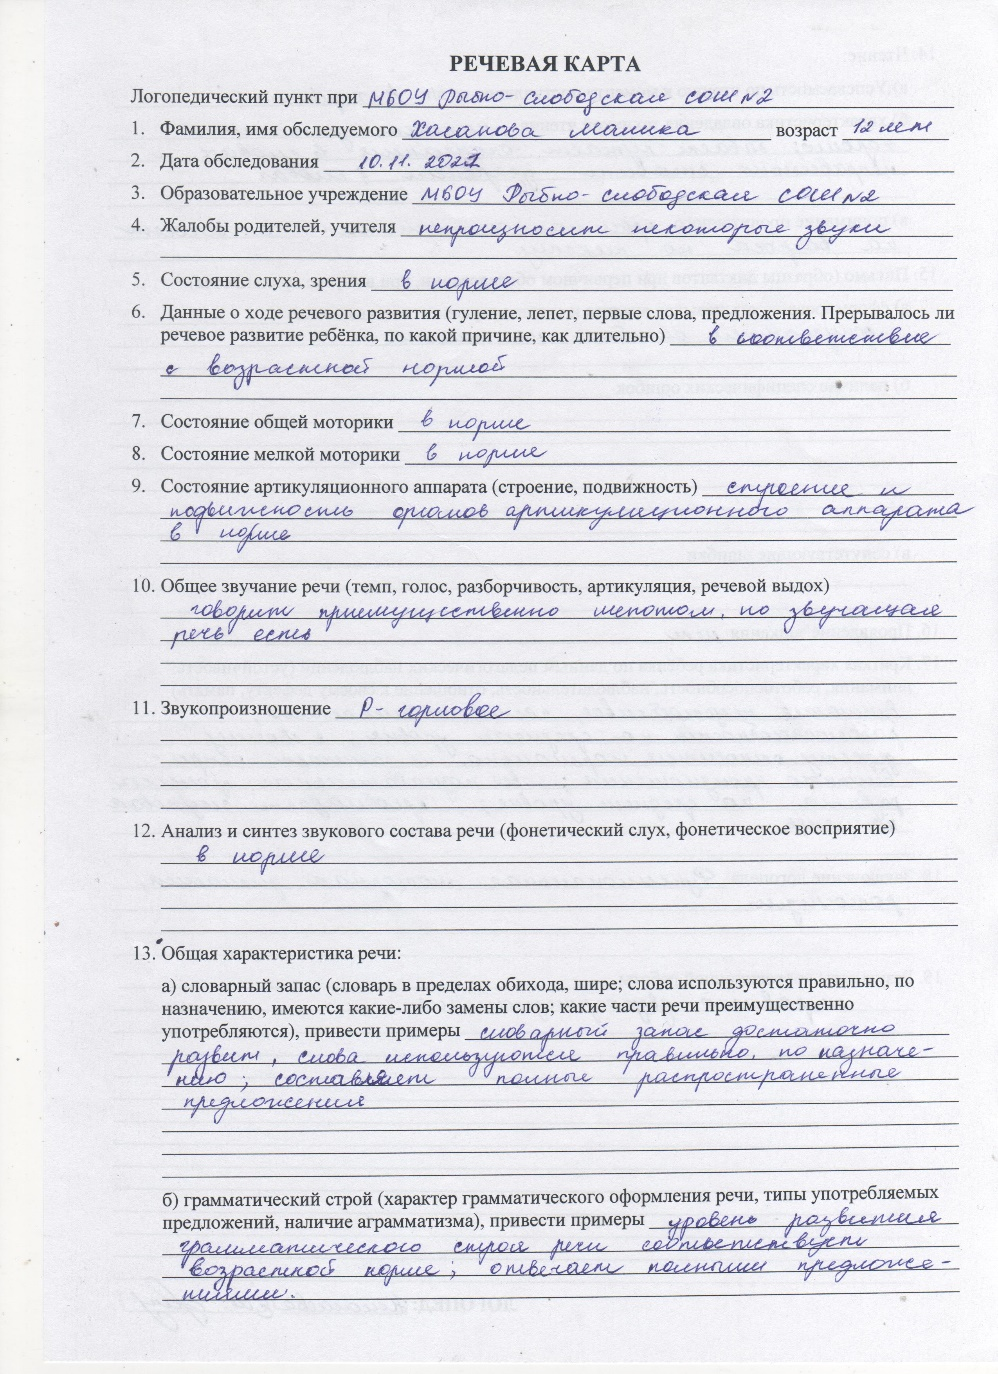 РЕЧЕВАЯ КАРТА
Логопедический пункт при МБОУ Рыбно-слободская СОШ №2
1. Фамилия, имя обследуемого Хасанова Малика возраст 12 лет
2. Дата обследования 10.11.2021
3. Образовательное учреждение МБОУ Рыбно-слободская СОШ №2
4. Жалобы родителей, учителя непроизносит некоторые звуки
5. Состояние слуха, зрения в норме
6. Данные о ходе речевого развития (гуление, лепет, первые слова, предложения. Прерывалось ли
речевое развитие ребёнка, по какой причине, как длительно) в соответствие
с возрастной нормой
7. Состояние общей моторики в норме
8. Состояние мелкой моторики в норме
9. Состояние артикуляционного аппарата (строение, подвижность) строение и
подвижность органов артикуляционного аппарата
в норме
10. Общее звучание речи (темп, голос, разборчивость, артикуляция, речевой выдох)
говорит приемущественно шепотом, но звучащая
речь есть
11. Звукопроизношение Р- горловое
12. Анализ и синтез звукового состава речи (фонетический слух, фонетическое восприятие)
в норме
13. Общая характеристика речи:
а) словарный запас (словарь в пределах обихода, шире; слова используются правильно, по
назначению, имеются какие-либо замены слов; какие части речи преимущественно
употребляются), привести примеры словарный запас достаточно
развит, слова используются правильно, по назначе-
нию; составляет полные распространенные
предложения
б) грамматический строй (характер грамматического оформления речи, типы употребляемых
предложений, наличие аграмматизма), привести примеры уровень развития
грамматического строя речи соответствует
возрастной норме; отвечает полными предложе-
ниями.